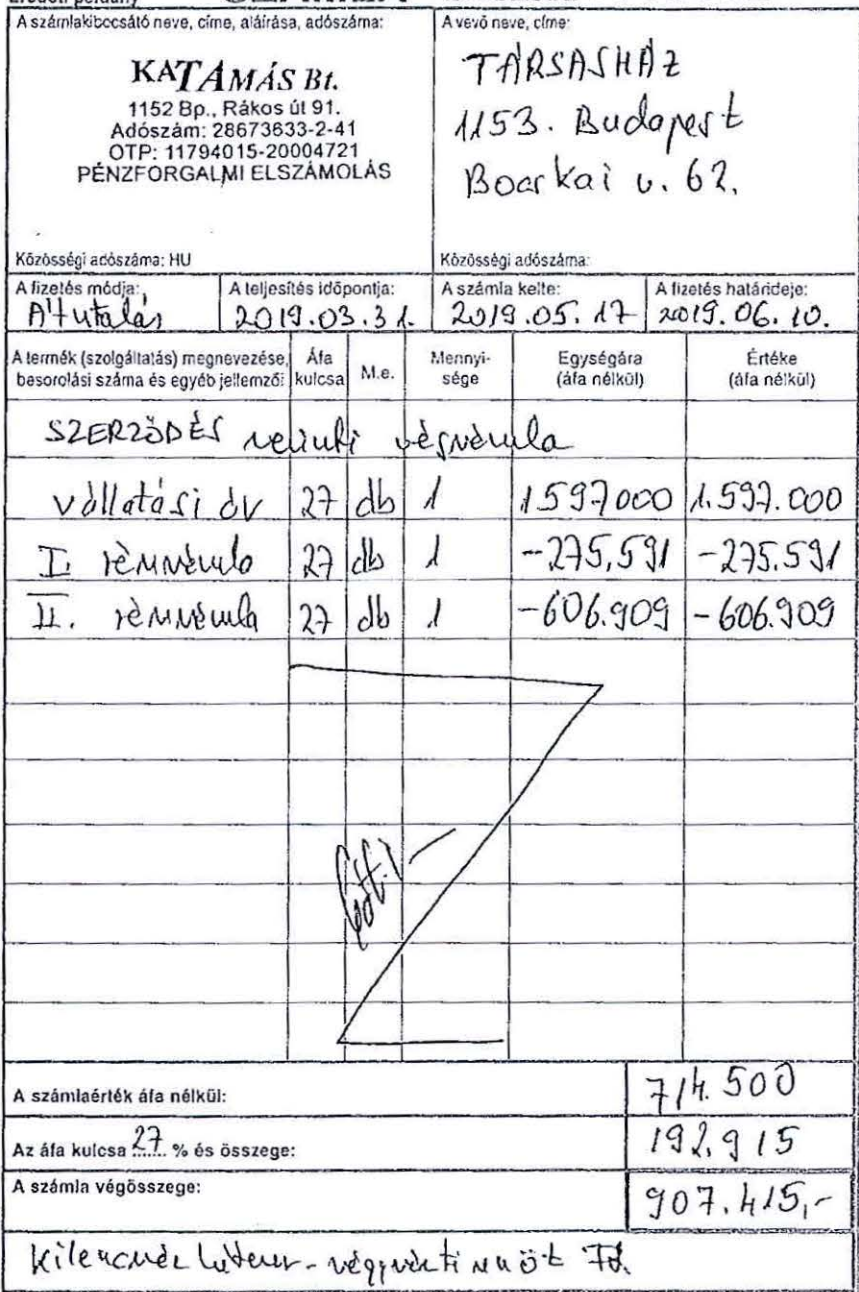 A számlakibocsátó neve, címe, aláírása, adószáma:
KATAMÁS Bt.
1152 Bp., Rákos út 91.
Adószám: 28673633-2-41
OTP: 11794015-20004721
PÉNZFORGALMI ELSZÁMOLÁS
Közösségi adószáma: HU
A vevő neve, címe:
TÁRSASHÁZ
1153. Budapest
Bocskai u. 62.
Közösségi adószáma:
A fizetés módja: A teljesítés időpontja: A számla kelte: A fizetés határideje:
Átutalás 2019.03.31. 2019.05.17 2019.06.10.
A termék (szolgáltatás) megnevezése, besorolási száma és egyéb jellemzői Áfa kulcsa M.e. Mennyisége Egységára (áfa nélkül) Értéke (áfa nélkül)
SZERZŐDÉS szerinti végszámla
vállalási ár 27 db 1 1597000 1.597.000
I. részszámla 27 db 1 -275.591 -275.591
II. részszámla 27 db 1 -606.909 -606.909
A számlaérték áfa nélkül: 714.500
Az áfa kulcsa 27 % és összege: 192.915
A számla végösszege: 907.415,-